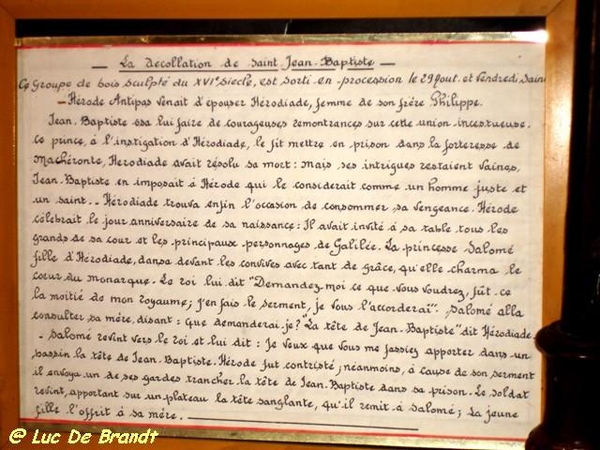 — La Décollation de Saint Jean-Baptiste —
Ce Groupe de bois sculpté du XVIe siècle, est sorti en procession le 29 Aout. et Vendredi Saint
— Hérode Antipas venait d'épouser Hérodiade, femme de son frère Philippe.
Jean-Baptiste osa lui faire de courageuses remontrances sur cette union incestueuse.
Ce prince, à l'instigation d'Hérodiade, le fit mettre en prison dans la forteresse de
Machéronte, Herodiade avait résolu sa mort : mais ses intrigues restaient vaines,
Jean-Baptiste en imposait à Hérode qui le considerait comme un homme juste et
un saint. - Hérodiade trouva enfin l'occasion de consommer sa vengeance. Hérode
célébrait le jour anniversaire de sa naissance : Il avait invité à sa table tous les
grands de sa cour et les principaux personnages de Galilée. La princesse Salomé
fille d'Hérodiade, dansa devant les convives avec tant de grâce, qu'elle charma le
coeur du monarque. Le roi lui dit "Demandez moi ce que vous voudrez, fût-ce
la moitié de mon royaume ; j'en fais le serment, je vous l'accorderai". Salomé alla
consulter sa mère, disant : que demanderai-je? "La tête de Jean-Baptiste" dit Hérodiade.
- Salomé revint vers le roi et lui dit : Je veux que vous me fassiez apporter dans un
bassin la tête de Jean-Baptiste. Hérode fut contristé ; néanmoins, à cause de son serment
il envoya un de ses gardes trancher la tête de Jean-Baptiste dans sa prison. Le soldat
revint, apportant sur un plateau la tête sanglante, qu'il remit à Salomé ; La jeune
fille l'offrit à sa mère.
@ Luc De Brandt